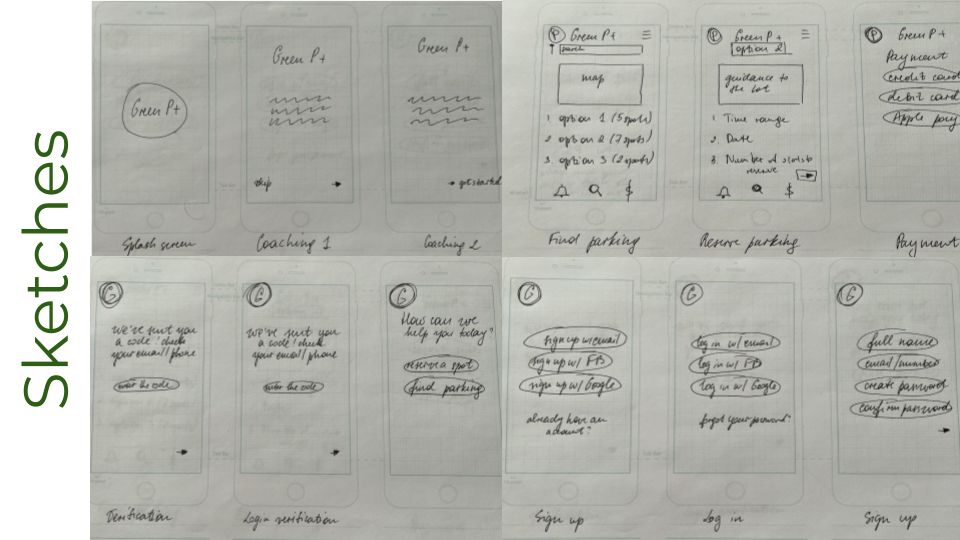 Sketches
Green P+
Splash screen
Green P+
skip
Coaching 1
Green P+
get started
Coaching 2
P Green P+
search
map
1. option 1 (5 spots)
2. option 2 (7 spots)
3. option 3 (2 spots)
$
Find parking
P Green P+
option 2
guidance to
the lot
1. Time range
2. Date
3. Number of slots to
reserve
$
Reserve parking
P Green P+
Payment
credit card
debit card
Apple pay
Payment
G
We've sent you
a code! check
your email/phone
enter the code
Verification
G
We've sent you
a code! check
your email/phone
enter the code
Login verification
G
How can we
help you today?
reserve a spot
find parking
G
sign up w/ email
sign up w/ FB
sign up w/ Google
already have an
account?
Sign up
G
log in w/ email
log in w/ FB
log in w/ Google
forgot your password?
Log in
G
full name
email/number
create password
confirm password
Sign up